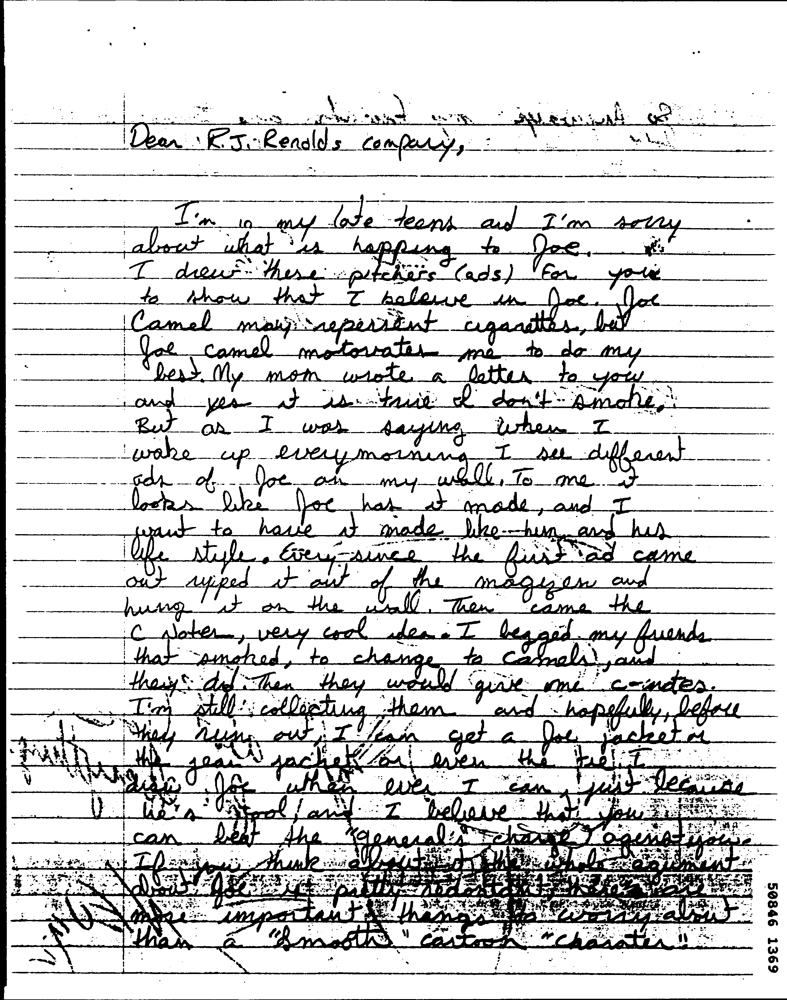 Dear R.J. Renolds company,
I'm in my late teens and I'm sorry
about what is happing to Joe.
I drew these pitchers (ads) For you
to show that I beleive in Joe. Joe
Camel may repersent cigarettes, but
Joe camel motorvates me to do my
best. My mom wrote a letter to you
and yes it is true I don't smoke.
But as I was saying when I
wake up everymorning I see different
ads of Joe on my wall. To me it
looks like Joe has it made, and I
want to have it made like him and his
life style. Every since the first ad came
out ripped it out of the magizen and
hung it on the wall. Then came the
C Notes, very cool idea. I begged my friends
that smoked, to change to Camels, and
they did. Then they would give me c-notes.
I'm still collecting them and hopefully, before
they run out, I can get a Joe jacket or
the jean jacket or even the tie. I
draw Joe when ever I can, just because
he's cool, and I beleive that you
can beat the "general's charge" agenst you.
If you think about it the whole agument
about Joe is pritty redontant, there are
more important things to worry about
than a "Smooth" cartoon "charater"!
50846 1369